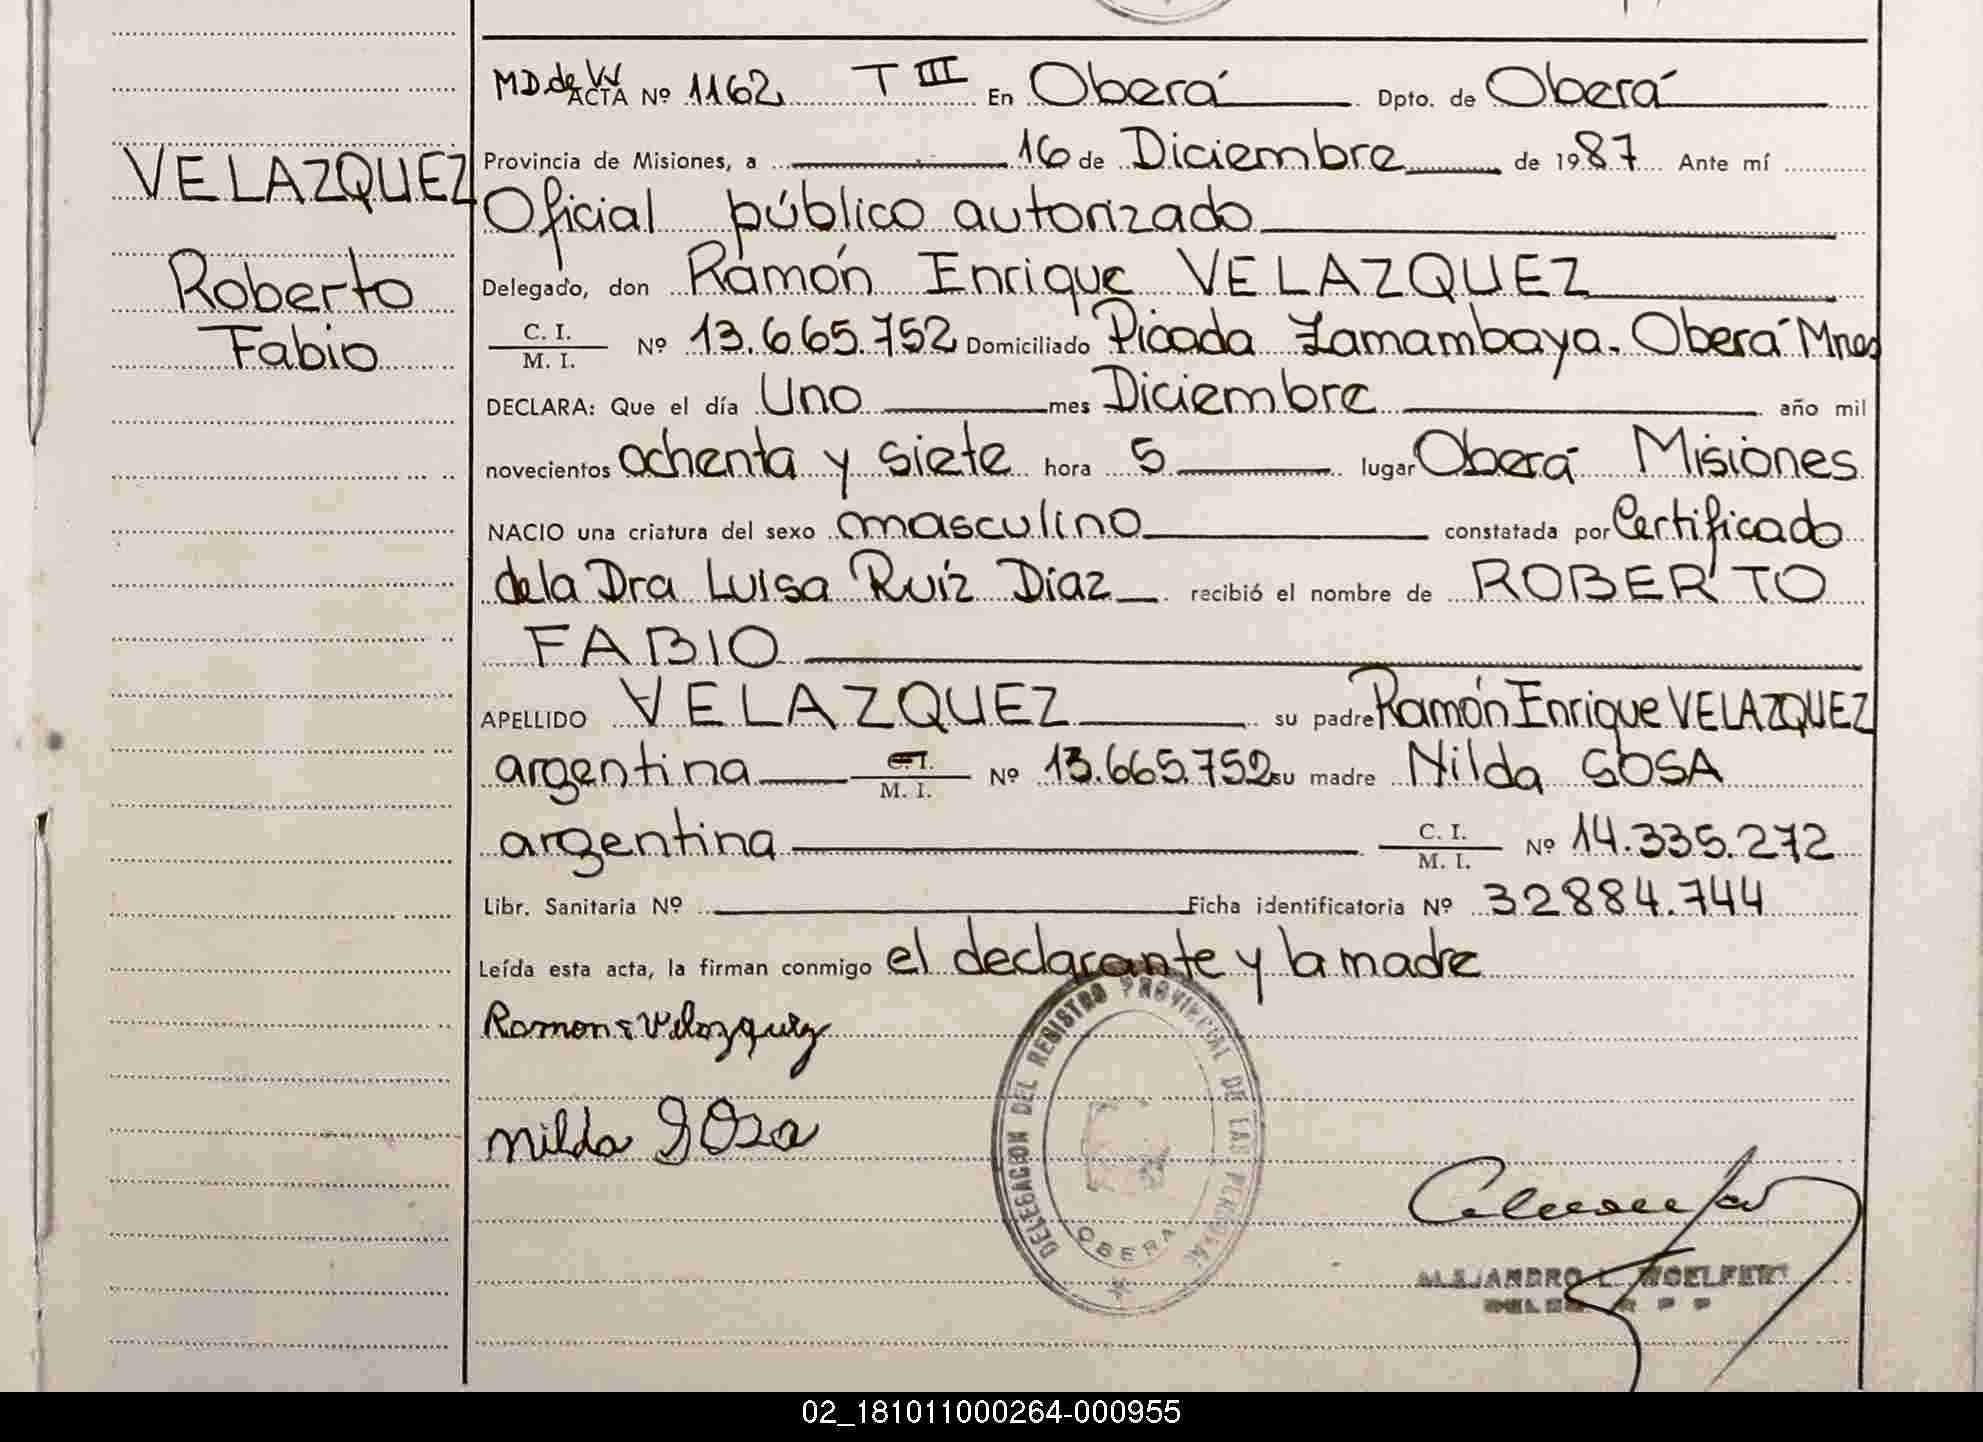 VELAZQUEZ
Roberto
Fabio
MD.de VV
ACTA Nº 1162 T III En Oberá Dpto. de Oberá
Provincia de Misiones, a 16 de Diciembre de 1987 Ante mí
Oficial público autorizado
Delegado, don Ramón Enrique VELAZQUEZ
C. I.
M. I. Nº 13.665.752 Domiciliado Picada Zamambaya. Oberá Mnes
DECLARA: Que el día Uno mes Diciembre año mil
novecientos ochenta y siete hora 5 lugar Oberá Misiones
NACIO una criatura del sexo masculino constatada por Certificado
de la Dra Luisa Ruíz Díaz recibió el nombre de ROBERTO
FABIO
APELLIDO VELAZQUEZ su padre Ramón Enrique VELAZQUEZ
argentina C.I.
M. I. Nº 13.665.752 su madre Nilda SOSA
argentina C. I.
M. I. Nº 14.335.272
Libr. Sanitaria Nº Ficha identificatoria Nº 32884.744
Leída esta acta, la firman conmigo el declarante y la madre
Ramon E Velazquez
Nilda Sosa
DELEGACION DEL REGISTRO PROVINCIAL DE LAS PERSONAS
OBERA
ALEJANDRO L. WOELFERT
02_181011000264-000955